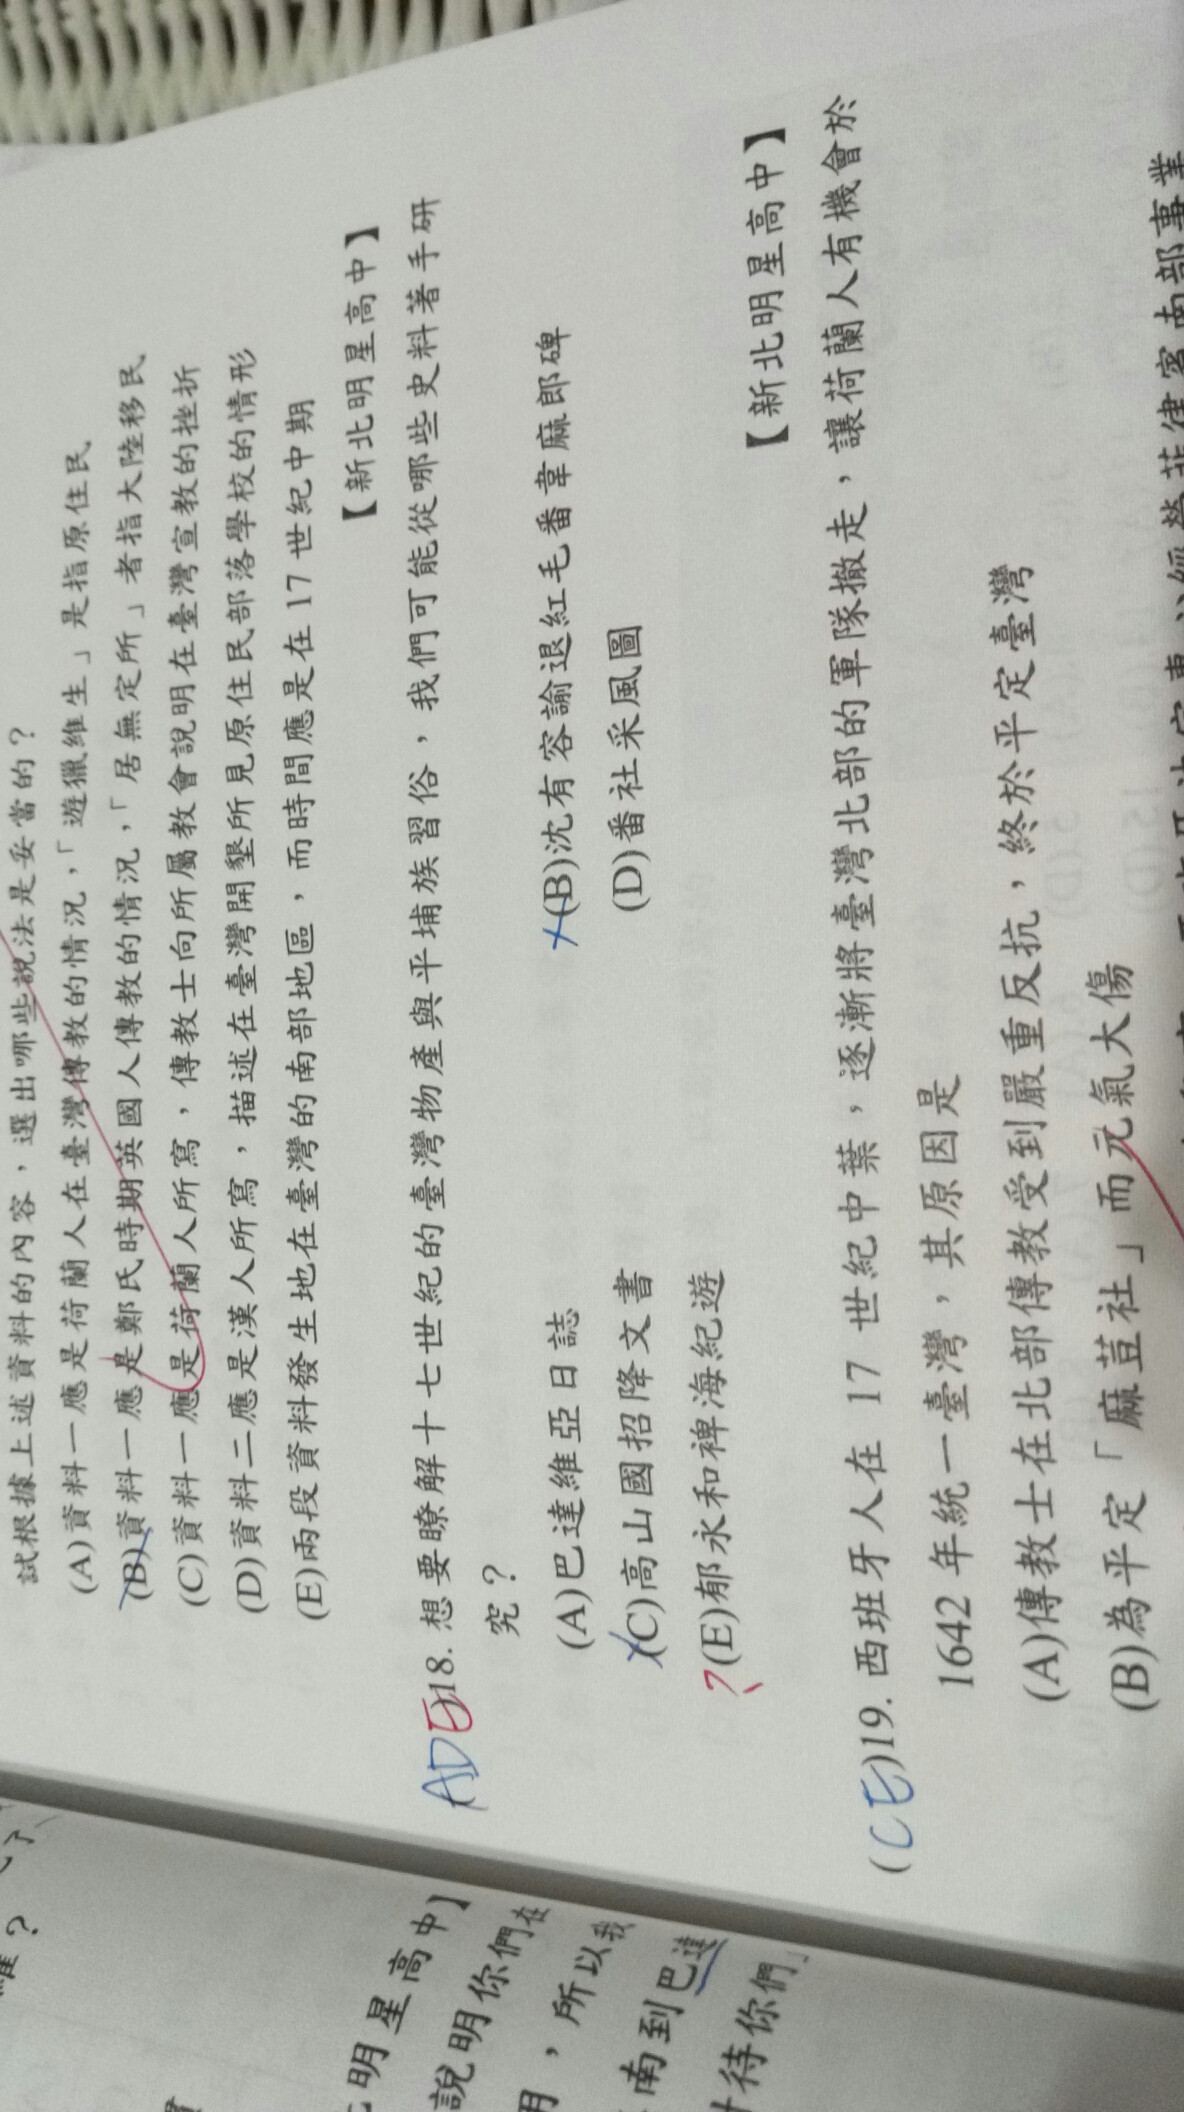 試根據上述資料的內容，選出哪些說法是妥當的？
(A)資料一應是荷蘭人在臺灣傳教的情況，「遊獵維生」是指原住民
(B)資料一應是鄭氏時期英國人傳教的情況，「居無定所」者指大陸移民
(C)資料一應是荷蘭人所寫，傳教士向所屬教會說明在臺灣宣教的挫折
(D)資料二應是漢人所寫，描述在臺灣開墾所見原住民部落學校的情形
(E)兩段資料發生地在臺灣的南部地區，而時間應是在 17 世紀中期
【新北明星高中】
ADE)18. 想要瞭解十七世紀的臺灣物產與平埔族習俗，我們可能從哪些史料著手研
究？
(A)巴達維亞日誌 (B)沈有容諭退紅毛番韋麻郎碑
(C)高山國招降文書 (D)番社采風圖
?(E)郁永和裨海紀遊
【新北明星高中】
(CE)19. 西班牙人在 17 世紀中葉，逐漸將臺灣北部的軍隊撤走，讓荷蘭人有機會於
1642 年統一臺灣，其原因是
(A)傳教士在北部傳教受到嚴重反抗，終於平定臺灣
(B)為平定「麻荳社」而元氣大傷
明星高中】
說明你們在
，所以我
南到巴達
待你們」